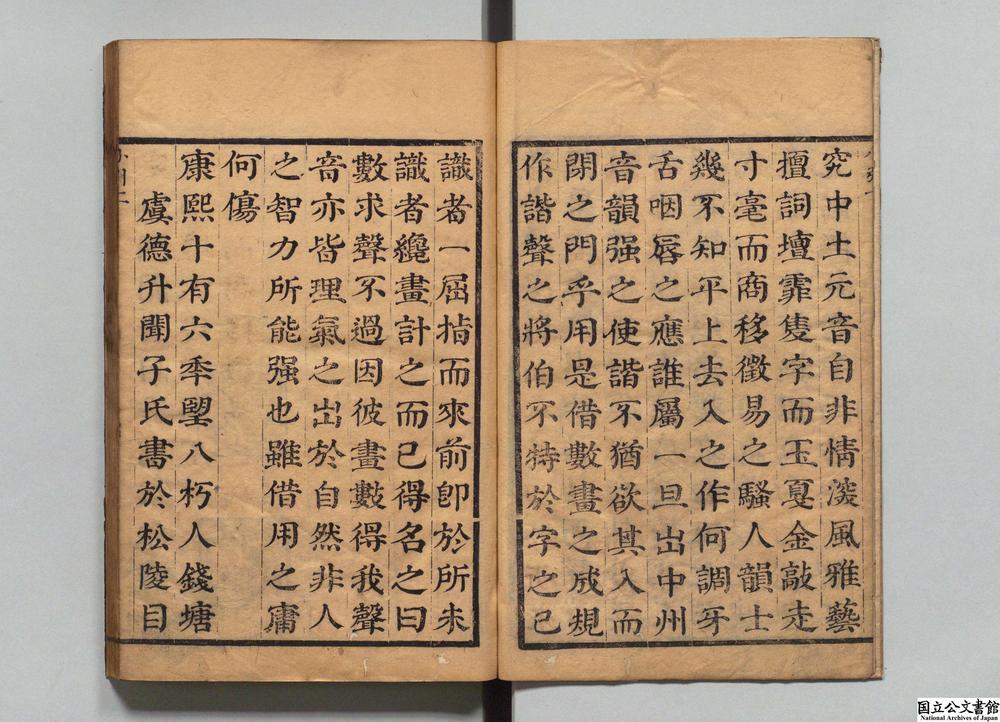 究中土元音自非情深風雅藝
擅詞壇霏隻字而玉戛金敲走
寸毫而商移徵易之騷人韻士
幾不知平上去入之作何調牙
舌咽唇之應誰屬一旦出中州
音韻强之使諧不猶欲其入而
閉之門乎用是借數畫之成規
作諧聲之將伯不特於字之已
識者一屈指而來前卽於所未
識者纔畫計之而已得名之曰
數求聲不過因彼畫數得我聲
音亦皆理氣之出於自然非人
之智力所能强也雖借用之庸
何傷
康熙十有六秊朢八朽人錢塘
虞德升聞子氏書於松陵目
国立公文書館
National Archives of Japan